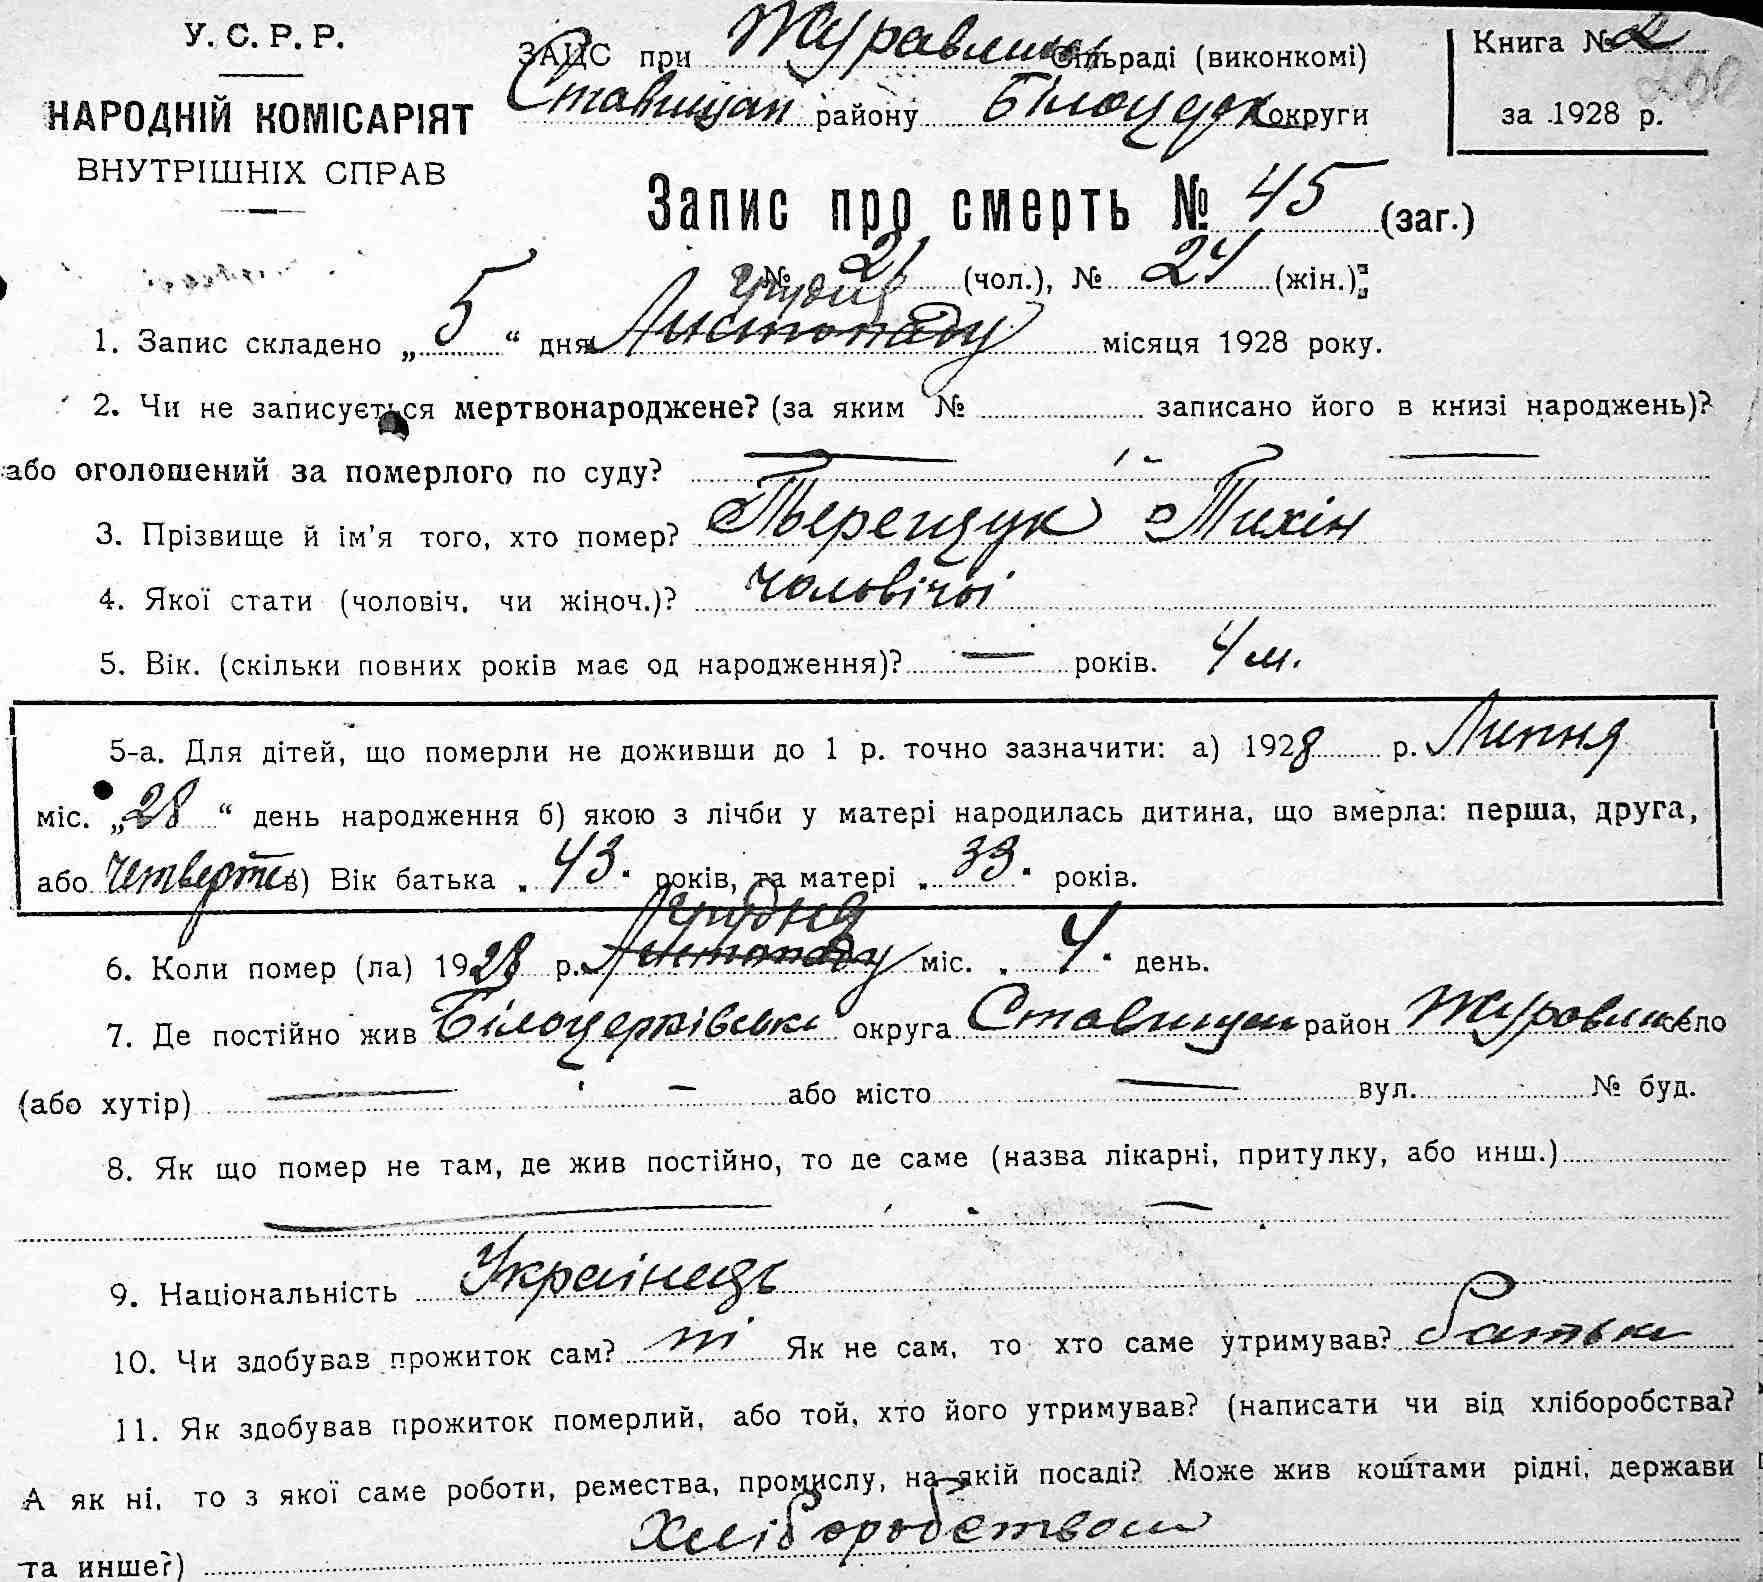 У. С. Р. Р.
НАРОДНІЙ КОМІСАРІЯТ
ВНУТРІШНІХ СПРАВ
ЗАЦС при Журавлин Сільраді (виконкомі)
Ставищан району Білоцерк округи
Книга № 2
250
за 1928 р.
Запис про смерть № 45 (заг.)
№ 21 (чол.), № 24 (жін.);
Грудня
1. Запис складено „ 5 “ дня Листопаду місяця 1928 року.
2. Чи не записується мертвонароджене? (за яким № записано його в книзі народжень)?
або оголошений за померлого по суду?
3. Прізвище й ім'я того, хто помер? Терещук Тихін
4. Якої стати (чоловіч. чи жіноч.)? чоловічої
5. Вік. (скільки повних років має од народження)? — років. 4 м.
5-а. Для дітей, що померли не доживши до 1 р. точно зазначити: а) 1928 р. Липня
міс. „28 “ день народження б) якою з лічби у матері народилась дитина, що вмерла: перша, друга,
або четверте в) Вік батька „ 43 " років, та матері „ 33 " років.
Грудня
6. Коли помер (ла) 1928 р. Листопаду міс. „ 4 " день.
7. Де постійно жив Білоцерківськ округа Ставищан район Журавлин село
(або хутір) — або місто — вул. № буд.
8. Як що помер не там, де жив постійно, то де саме (назва лікарні, притулку, або инш.)
9. Національність Українець
10. Чи здобував прожиток сам? ні Як не сам, то хто саме утримував? батьки
11. Як здобував прожиток померлий, або той, хто його утримував? (написати чи від хліборобства?
А як ні, то з якої саме роботи, ремества, промислу, на якій посаді? Може жив коштами рідні, держави
та инше?) Хліборобством